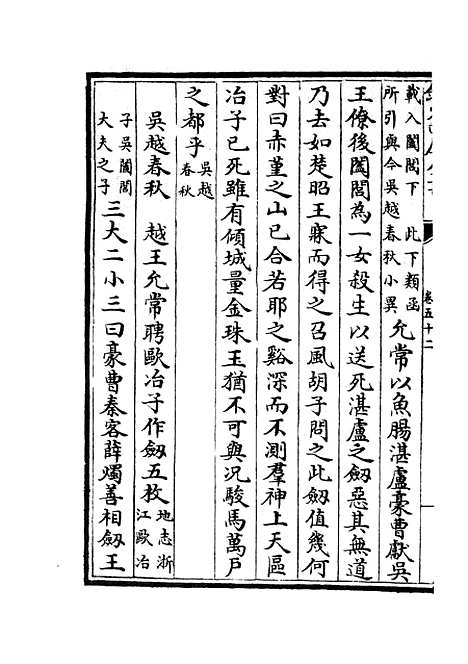 卷五十二
載入闔閭下　此下類函
所引與今吳越春秋小異
允常以魚腸湛盧豪曹獻吳
王僚後闔閭為一女殺生以送死湛盧之劔惡其無道
乃去如楚昭王寐而得之召風胡子問之此劔值幾何
對曰赤堇之山已合若耶之谿深而不測羣神上天區
冶子已死雖有傾城量金珠玉猶不可與況駿馬萬戶
之都乎
吳越
春秋
吳越春秋　越王允常聘歐冶子作劔五枚
地志浙
江歐冶
子吳闔閭
大夫之子
三大二小三曰豪曹秦客薛燭善相劔王